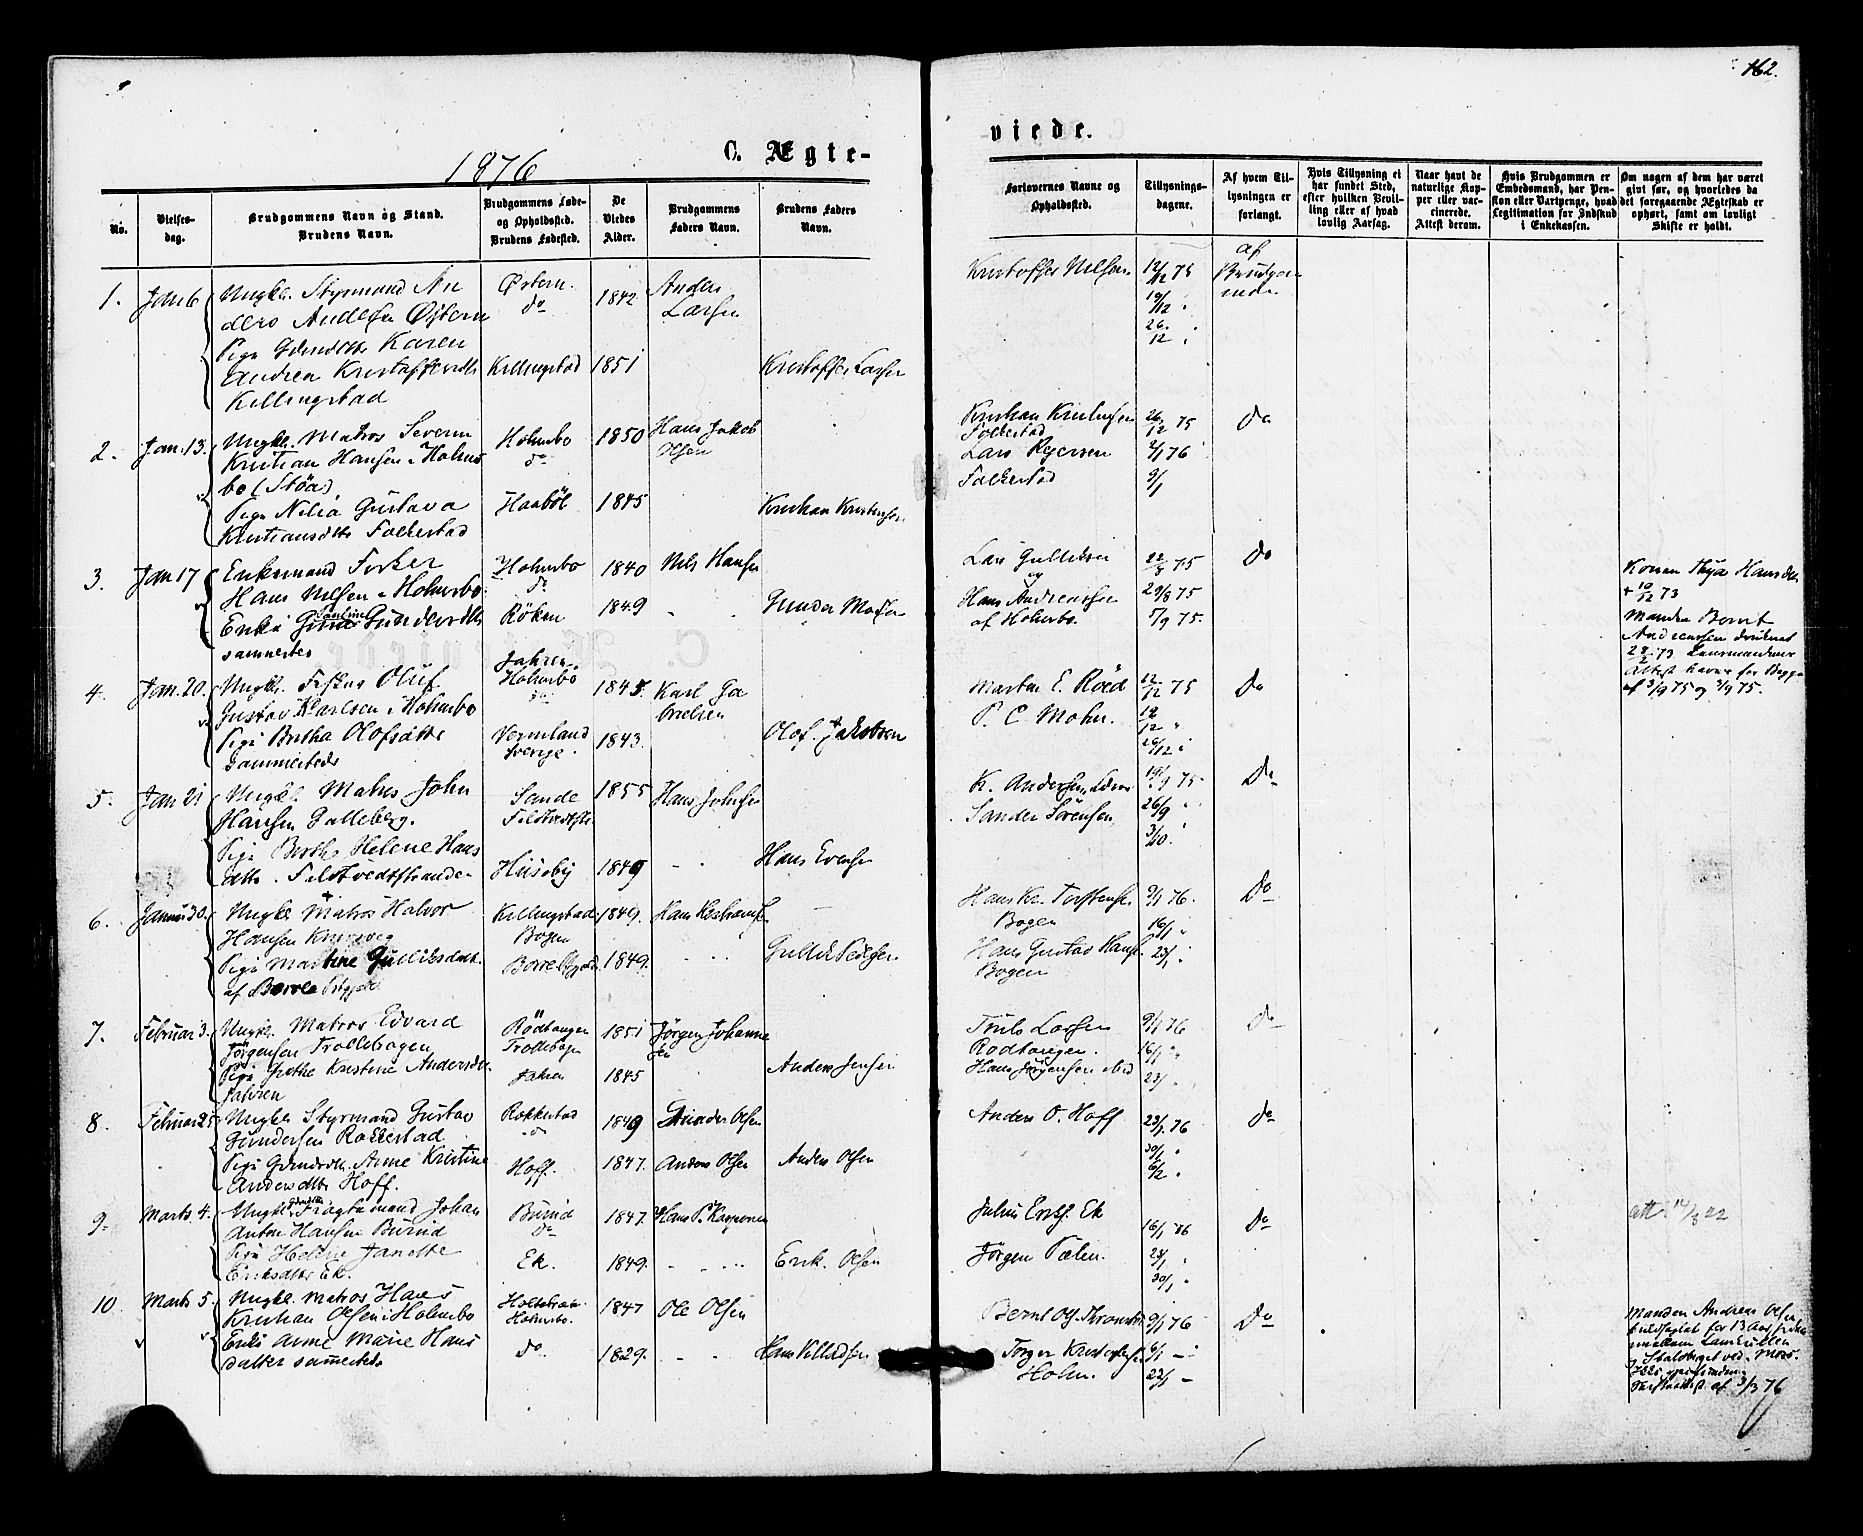 162.
1876
C. Ægte-
viede.
No.
Vielses-
dag.
Brudgommens Navn og Stand.
Brudens Navn.
Brudgommens Føde-
og Opholdssted.
Brudens Fødested.
De
Viedes
Alder.
Brudgommens
Faders Navn.
Brudens Faders
Navn.
Forlovernes Navne og
Opholdssted.
Tillysnings-
dagene.
Af hvem Til-
lysningen er
forlangt.
Hvis Tillysning ei
har fundet Sted,
efter hvilken Bevil-
ling eller af hvad
lovlig Aarsag.
Naar havt de
naturlige Kop-
per eller vac-
cinerede.
Attest derom.
Hvis Brudgommen er
Embedsmand, har Pen-
sion eller Vartpenge, hvad
Legitimation for Indskud
i Enkekassen.
Om nogen af dem har været
givt før, og hvorledes da
det foregaaende Ægteskab er
ophørt, samt om lovligt
Skifte er holdt.
1. Jan 6 Ungkl. Styrmand An
ders Andersen Østern
Pige Gdmdtr Karen
Andrea Kristoffersdtr
Killingstad
Østern
do
Killingstad
1842
1851
Anders
Larsen
Kristoffer Larsen
Kristoffer Nilsen
12/12 75
19/12 "
26/12 "
af
Brudgom
men
2. Jan. 13. Ungkl. Matros Severin
Kristian Hansen i Holms
bo (Støa)
Pige Nilia Gustava
Kristiansdtr Folkestad
Holmsbo
do
Haabøl
1850
1845
Hans Jakob
Olsen
Kristian Kristensen
Kristian Kristensen
Folkestad
Lars Reiersen
Folkestad
26/12 75
2/1 76
9/1
Do
3. Jan 17 Enkemand Fisker
Hans Nilsen i Holmsbo
Enke Gunderdtr
sammesteds
Holmsbo
do
Røken
1840
1849
Nils Hansen
Gunder
Lars Gulliksen
og
Hans Andreassen
af Holmsbo.
22/8 75
29/8 75
5/9 75.
Do
Konen Hansdtr
+ 10/12 73
Manden Bernt
Andreassen druknet
28/2 73 Lensmandens
Attest for Begge
af 3/9 75 og 3/9 75.
4. Jan. 20. Ungkl. Fisker Oluf
Gustav Karlsen i Holmsbo
Pige Britha Olofsdtr
sammesteds
Jahren
Holmsbo
do
Vermland
Sverige.
1845.
1843.
Karl Ga
brielsen
Olof Jakobsen
Martin E. Røed
P. C. Mohn.
12/12 75
19/12 "
26/12 "
Do
5. Jan 21 Ungkl. Matros John
Hansen Galleberg.
Pige Berthe Helene Hans
dtr. Filtvedtstranden
Sande
Filtvedtstr.
Huseby
1855
1849
Hans Johnsen
Hans Evensen
K. Andersen
Sander Sørensen
19/9 75
26/9 "
3/10 "
Do
6. Januar 30. Ungkl Matros Halvor
Hansen
Pige Martine Gulliksdatt.
af Borre
Killingstad
Bogen
Borre
1849.
1849.
Hans
Gullik Pedersen
Hans Kr. Torstensen
Bogen
Hans Gustav Hansen
Bogen
9/1 76.
16/1 "
23/1 "
Do
7. Februar 3. Ungkl. Matros Edvard
Jørgensen Trollebogen
Pige Grethe Kristine Andersdtr
Jahren
Rødtangen
Trollebogen
Jahren
1851
1845
Jørgen Johanne
sen
Anders Jensen
Truls Larsen
Rødtangen.
Hans Jørgensen
9/1 76
16/1 "
23/1 "
Do
8. Februar 25 Ungkl Styrmand Gustav
Gundersen Rokkestad
Pige Gdmdtr. Anne Kristine
Andersdtr Hoff.
Rokkestad
do
Hoff.
1849
1847.
Gunder Olsen
Anders Olsen
Anders Olsen
Anders O. Hoff
23/1 76
30/1 "
6/2 "
Do
9. Marts 4. Ungkl. Fragtemand Johan
Anton Hansen Burud
Pige Helene Janette
Eriksdtr Ek.
Burud
do
Ek.
1847.
1849.
Hans P. Kaspersen
Erik Olsen
Julius Ek
Jørgen
16/1 76
23/1 "
30/1 "
Do
att 14/8 22
10. Marts 5. Ungkl. Matros Hans
Kristian Olsen i Holmsbo
Enke Anne Marie Hans
datter sammesteds
Holmsbo.
do
1847
1829.
Ole Olsen
Hans Killidsen
Bernt
9/1 76
Torger Kristoffersen
Holm.
23/1 —
Do
Manden Andreas Olsen
for 13 Aar siden
mellem
og ved Moss.
Attest af 3/3 76